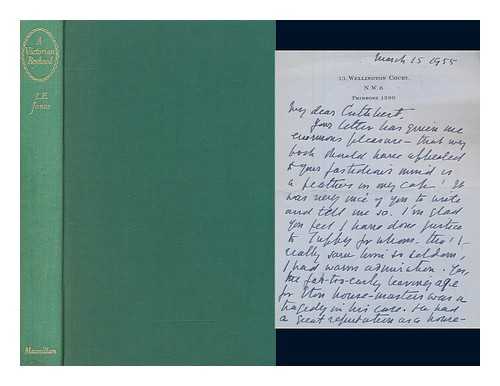 A
Victorian
Boyhood
L.E.
Jones
Macmillan
March 15 1955
13, WELLINGTON COURT,
N.W.8
PRIMROSE 1390
My dear Cuthbert,
Your letter has given me
enormous pleasure – that my
book should have appealed
to your fastidious mind is
a feather in my cap! It
was very nice of you to write
and tell me so. I'm glad
you feel I have done justice
to Tuppy for whom, tho' I
really saw him so seldom,
I had warm admiration. Yes,
the far-too-early leaving age
for Eton house-masters was a
tragedy in his case. He had
a great reputation as a house-